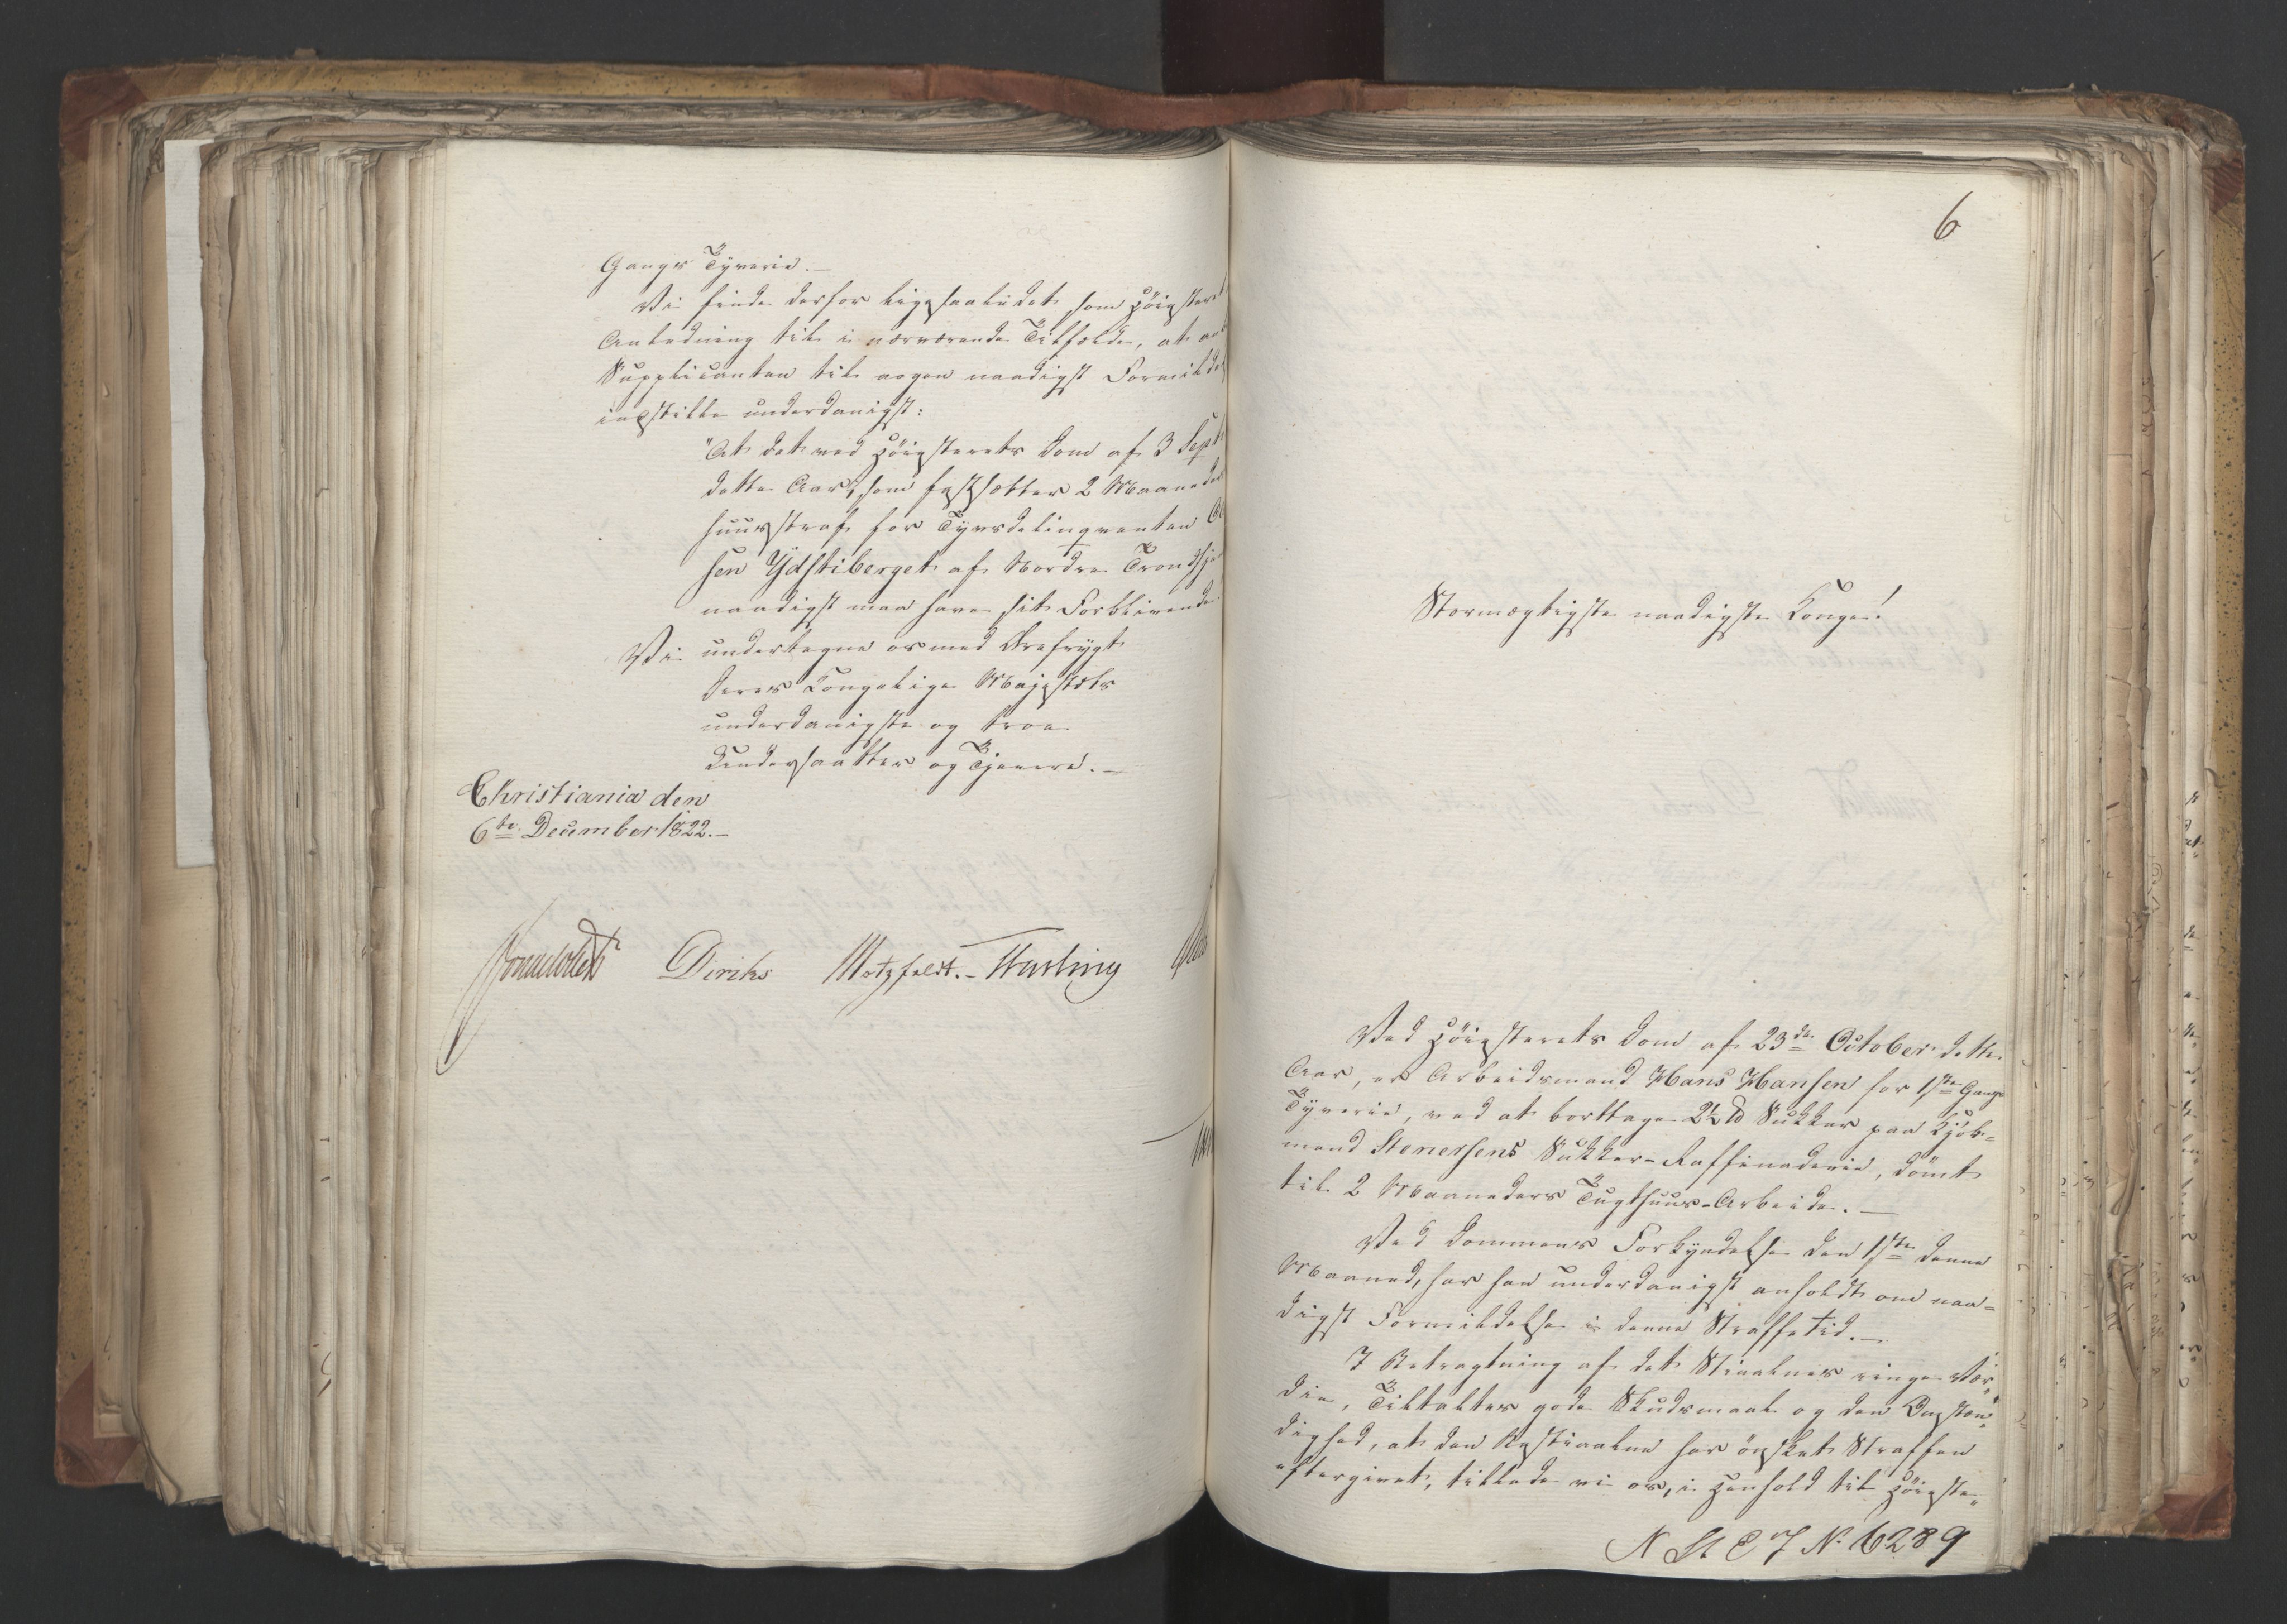 Gangs Tyverie. —
Vi finde derfor ligesaalidet som Höieste
Anledning til i nærværende Tilfælde, at
Supplicanten til nogen naadigst Formild
indstille underdanigst:
"At det ved Höiesterets Dom af 3 Sept
dette Aar, som fastsætter 2 Maaneders
huusstraf for Tyvsdelinqventen
sen Ydstiberget af Nordre Trondhj
naadigst maa have sit Forblivende
Vi undertegne os med Ærefrygt
Deres Kongelige Majestæts
underdanigste og troe
Undersaatter og Tjenere. —
Christiania den
6te December 1822. —
Sommerhielm Diriks Motzfeldt. — Hasting
6
Stormægtigste naadigste Konge!
Ved Höiesterets Dom af 23de October dette
Aar, er Arbeidsmand Hans Hansen for 1ste Gangs
Tyverie, ved at borttage 2½ ℔ Sukker paa Kjöb=
mand Stenersens Sukker-Raffinaderie, dömt
til 2 Maaneders Tugthuus-Arbeide. —
Ved Dommens Forkyndelse den 1ste denne
Maaned, har han underdanigst anholdt om naa=
digst Formildelse i denne Straffetid. —
I Betragtning af det Stiaalnes ringe Vær„
die, Tiltaltes gode Skudsmaal og den Omstæn„
dighed, at den Bestiaalne har önsket Straffen
eftergivet, tillade vi os, i Henhold til Höieste„
N St C J No 6289